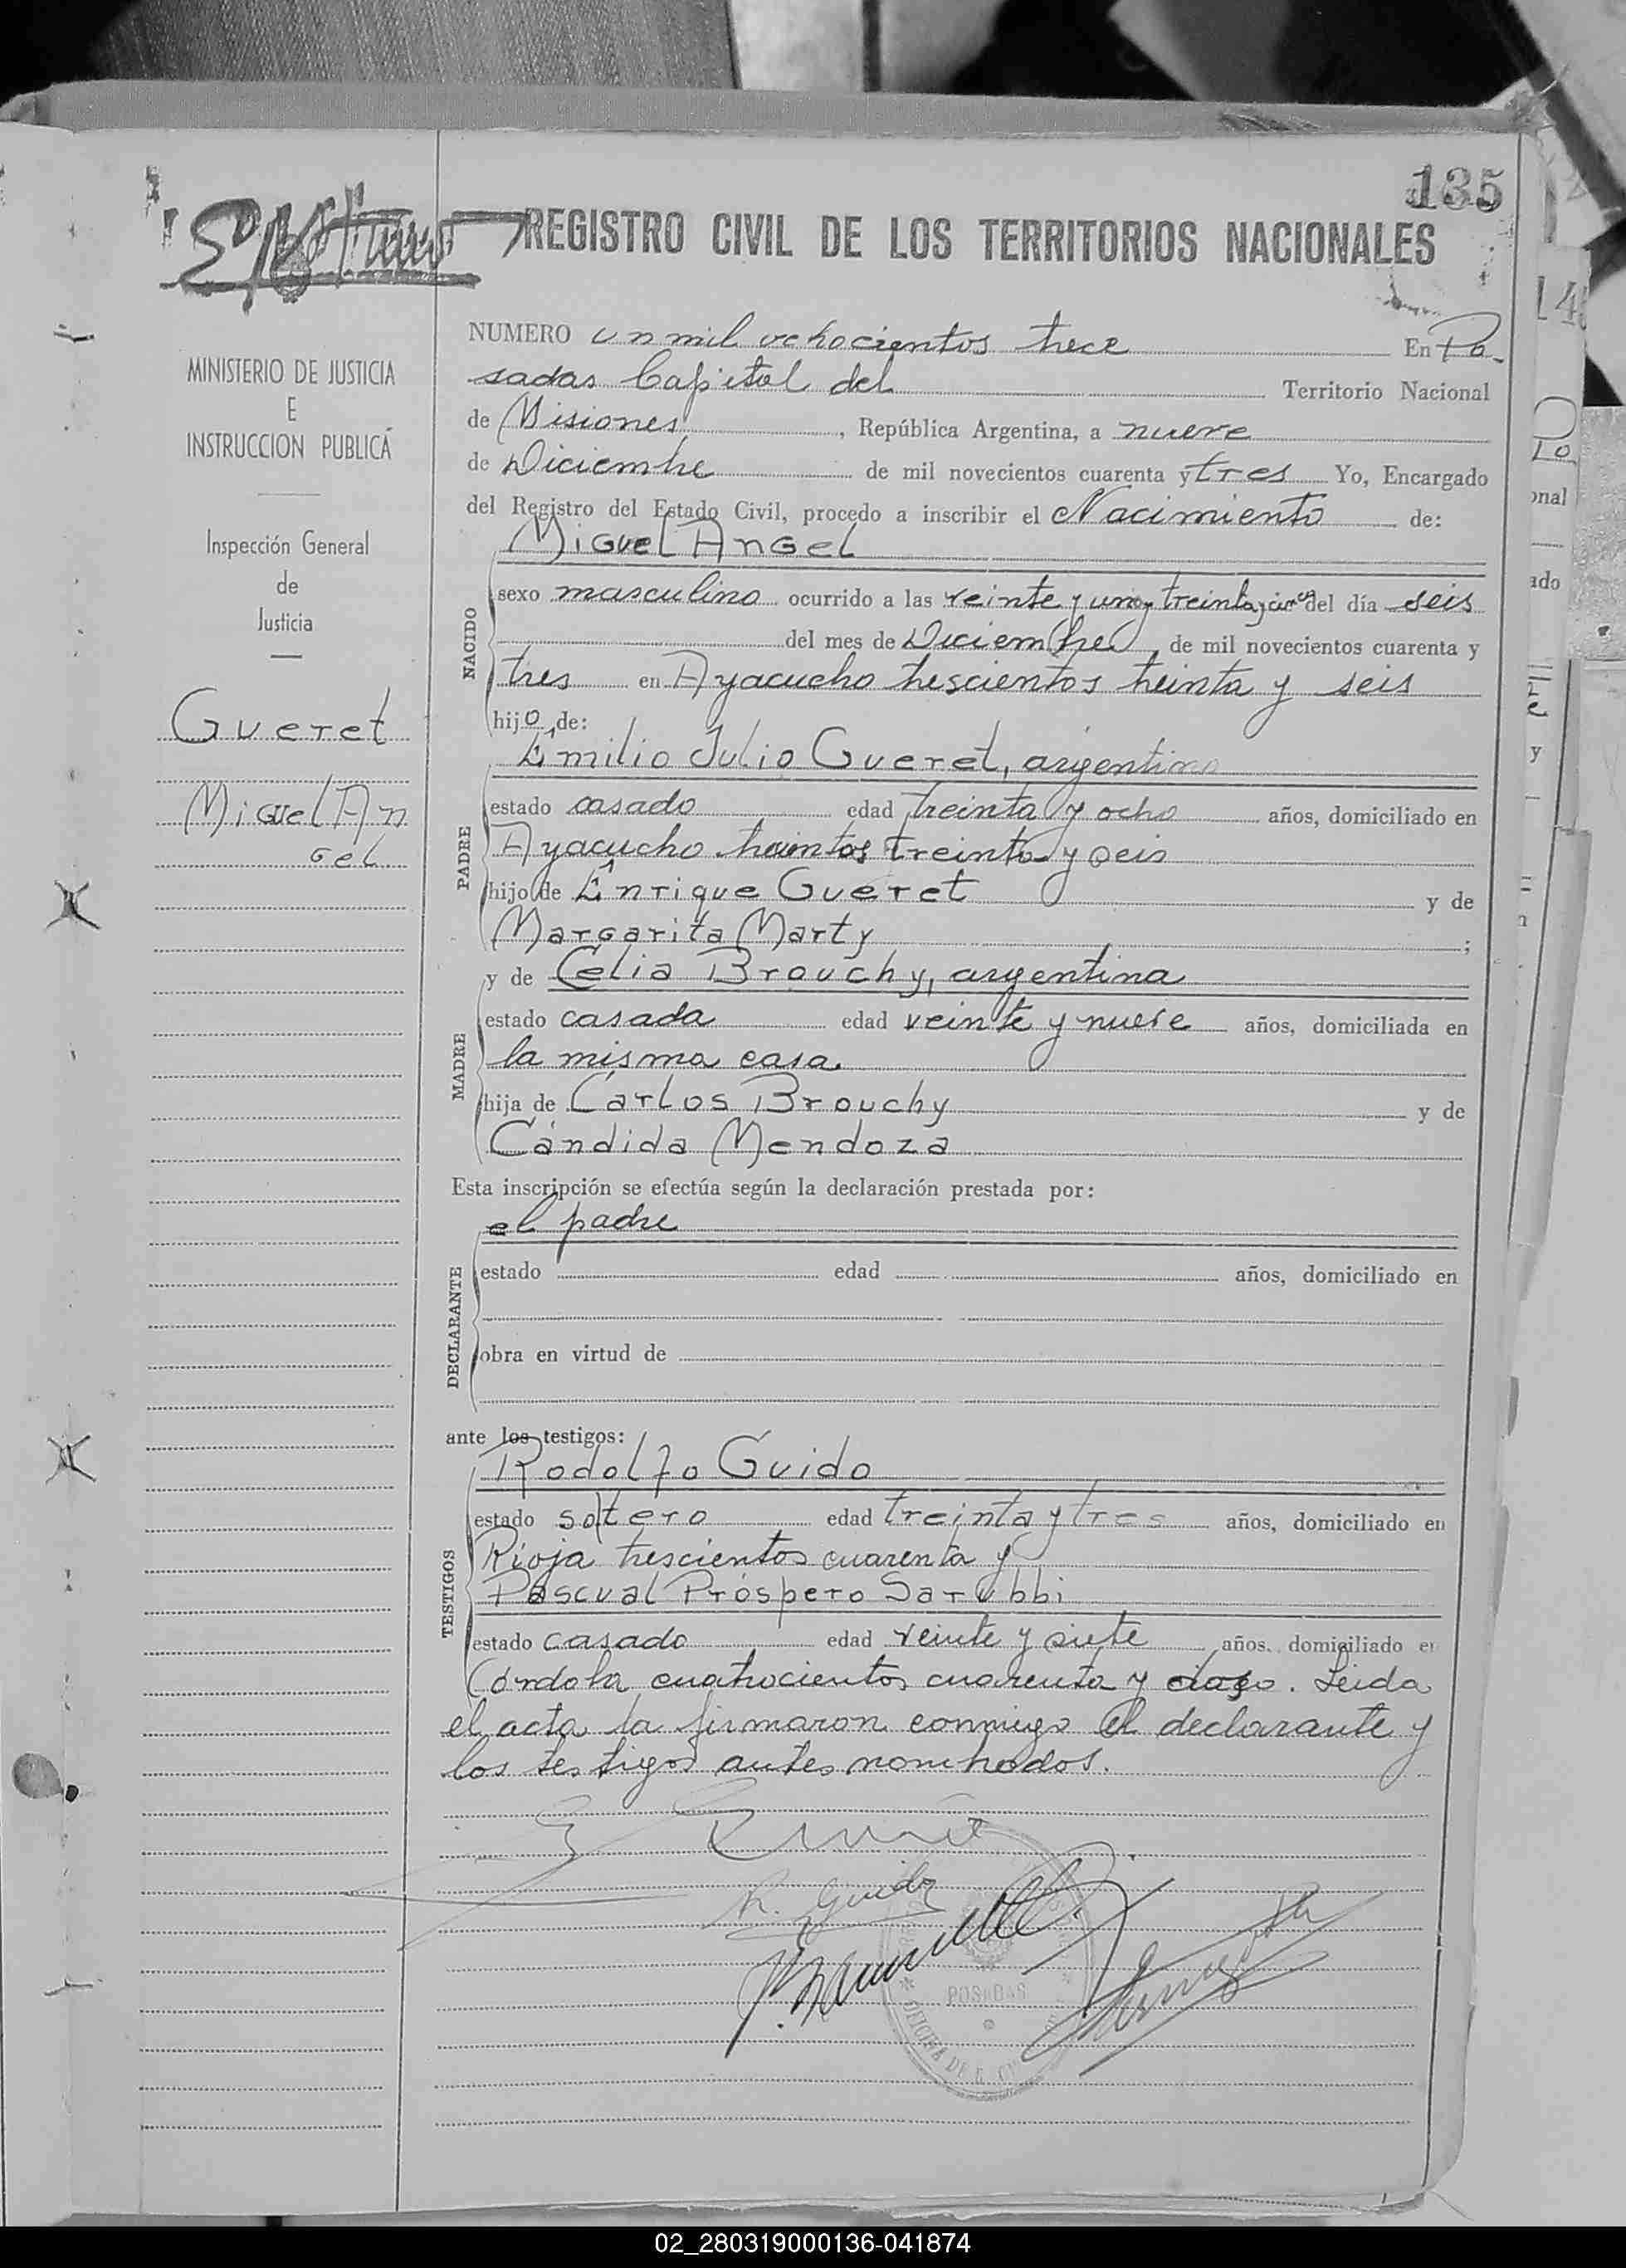 135
REGISTRO CIVIL DE LOS TERRITORIOS NACIONALES
MINISTERIO DE JUSTICIA
E
INSTRUCCION PUBLICA
Inspección General
de
Justicia
Gueret
Miguel An
gel
NUMERO un mil ochocientos trece En Po-
sadas Capital del Territorio Nacional
de Misiones, República Argentina, a nueve
de Diciembre de mil novecientos cuarenta y tres Yo, Encargado
del Registro del Estado Civil, procedo a inscribir el Nacimiento de:
NACIDO
Miguel Angel
sexo masculino ocurrido a las veinte y uno y treinta y cinco del día seis
del mes de Diciembre, de mil novecientos cuarenta y
tres en Ayacucho trescientos treinta y seis
hijo de:
PADRE
Emilio Julio Gueret, argentino
estado casado edad treinta y ocho años, domiciliado en
Ayacucho treientos treinta y seis
hijo de Enrique Gueret y de
Margarita Marty ;
MADRE
y de Celia Brouchy, argentina
estado casada edad veinte y nueve años, domiciliada en
la misma casa.
hija de Carlos Brouchy y de
Cándida Mendoza
Esta inscripción se efectúa según la declaración prestada por:
DECLARANTE
el padre
estado edad años, domiciliado en
obra en virtud de
ante los testigos:
TESTIGOS
Rodolfo Guido
estado soltero edad treinta y tres años, domiciliado en
Rioja trescientos cuarenta y
Pascual Próspero Sarubbi
estado casado edad veinte y siete años. domiciliado en
Córdoba cuatrocientos cuarenta y . Leida
el acta la firmaron conmigo el declarante y
los testigos antes nombrados.
R. Guido
POSADAS
OFICINA DE R. C
140
02_280319000136-041874